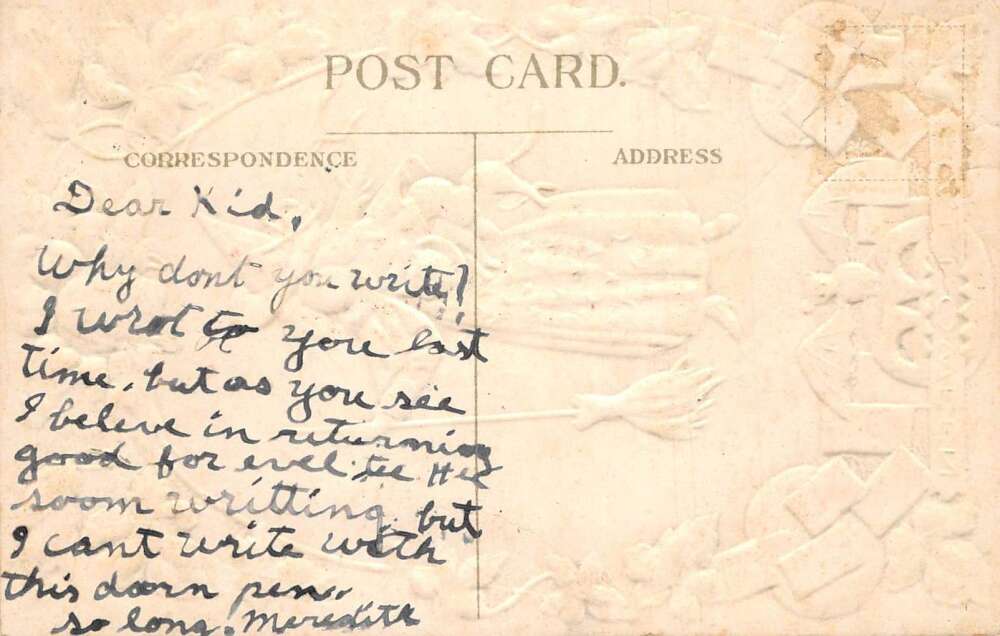 POST CARD.
CORRESPONDENCE
ADDRESS
Dear Kid,
Why dont you write!!
I wrot to you last
time, but as you see
I beleve in returning
good for evel. tee Hee
soom writting but
I cant write with
this darn pen.
so long. Meredith